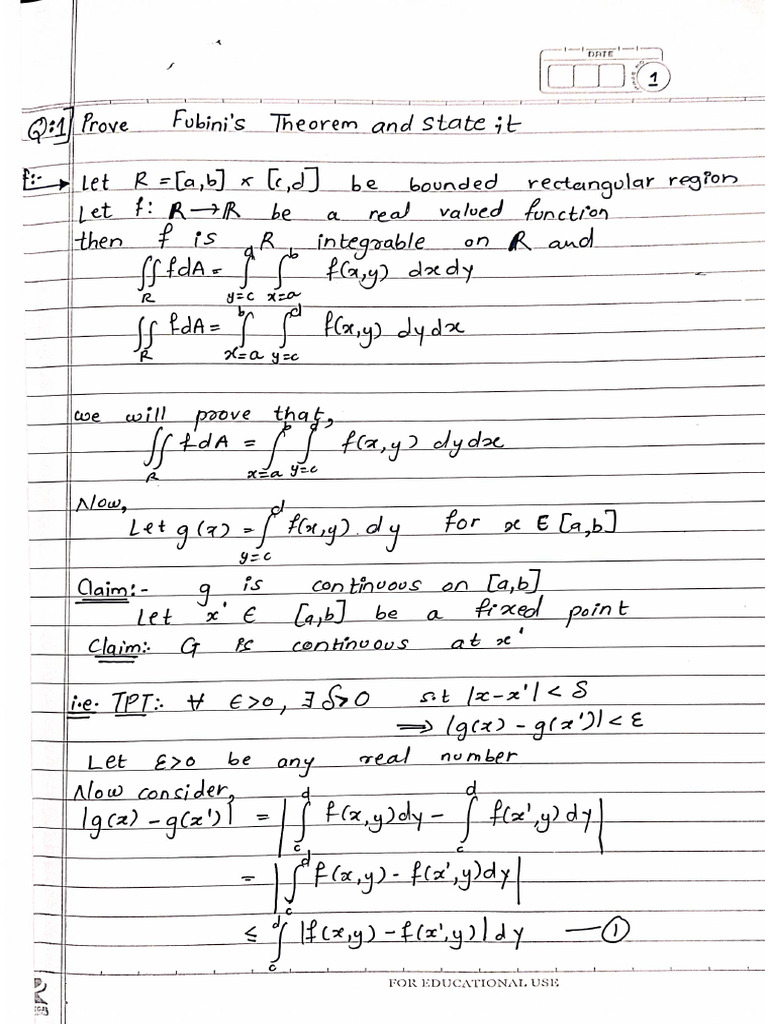 DATE
1
Q:1] Prove Fubini's Theorem and state it
f:- → Let R = [a,b] × [c,d] be bounded rectangular region
Let f: R→R be a real valued function
then f is R integrable on R and
∬_R f dA = ∫_{y=c}^{d} ∫_{x=a}^{b} f(x,y) dx dy
∬_R f dA = ∫_{x=a}^{b} ∫_{y=c}^{d} f(x,y) dy dx
we will prove that,
∬_R f dA = ∫_{x=a}^{b} ∫_{y=c}^{d} f(x,y) dy dx
Now,
Let g(x) = ∫_{y=c}^{d} f(x,y). dy for x ∈ [a,b]
Claim:- g is continuous on [a,b]
Let x' ∈ [a,b] be a fixed point
Claim:. G is continuous at x'
i.e. TPT:. ∀ ε>0, ∃ δ>0 s.t |x-x'| < δ
⟹ |g(x) - g(x')| < ε
Let ε>0 be any real number
Now consider,
|g(x) - g(x')| = |∫_c^d f(x,y)dy - ∫_c^d f(x',y)dy|
= |∫_c^d f(x,y) - f(x',y)dy|
≤ ∫_c^d |f(x,y) - f(x',y)|dy —①
FOR EDUCATIONAL USE